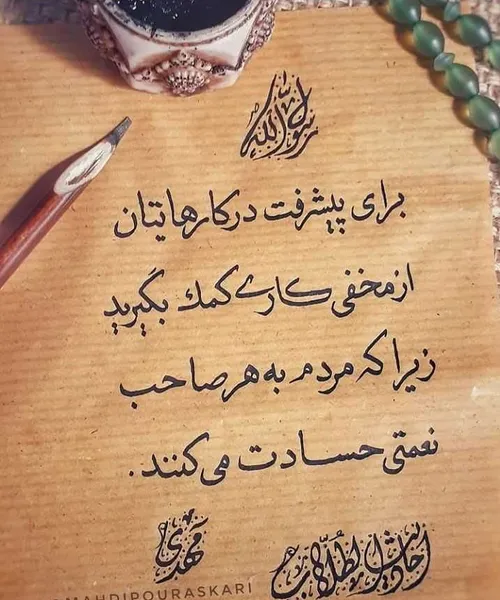 رسول الله
برای پیشرفت در کارهایتان
از مخفی کاری کمک بگیرید
زیرا که مردم به هر صاحب
نعمتی حسادت می‌کنند.
احادیث الطلاب
مهدی
MAHDIPOURASKARI